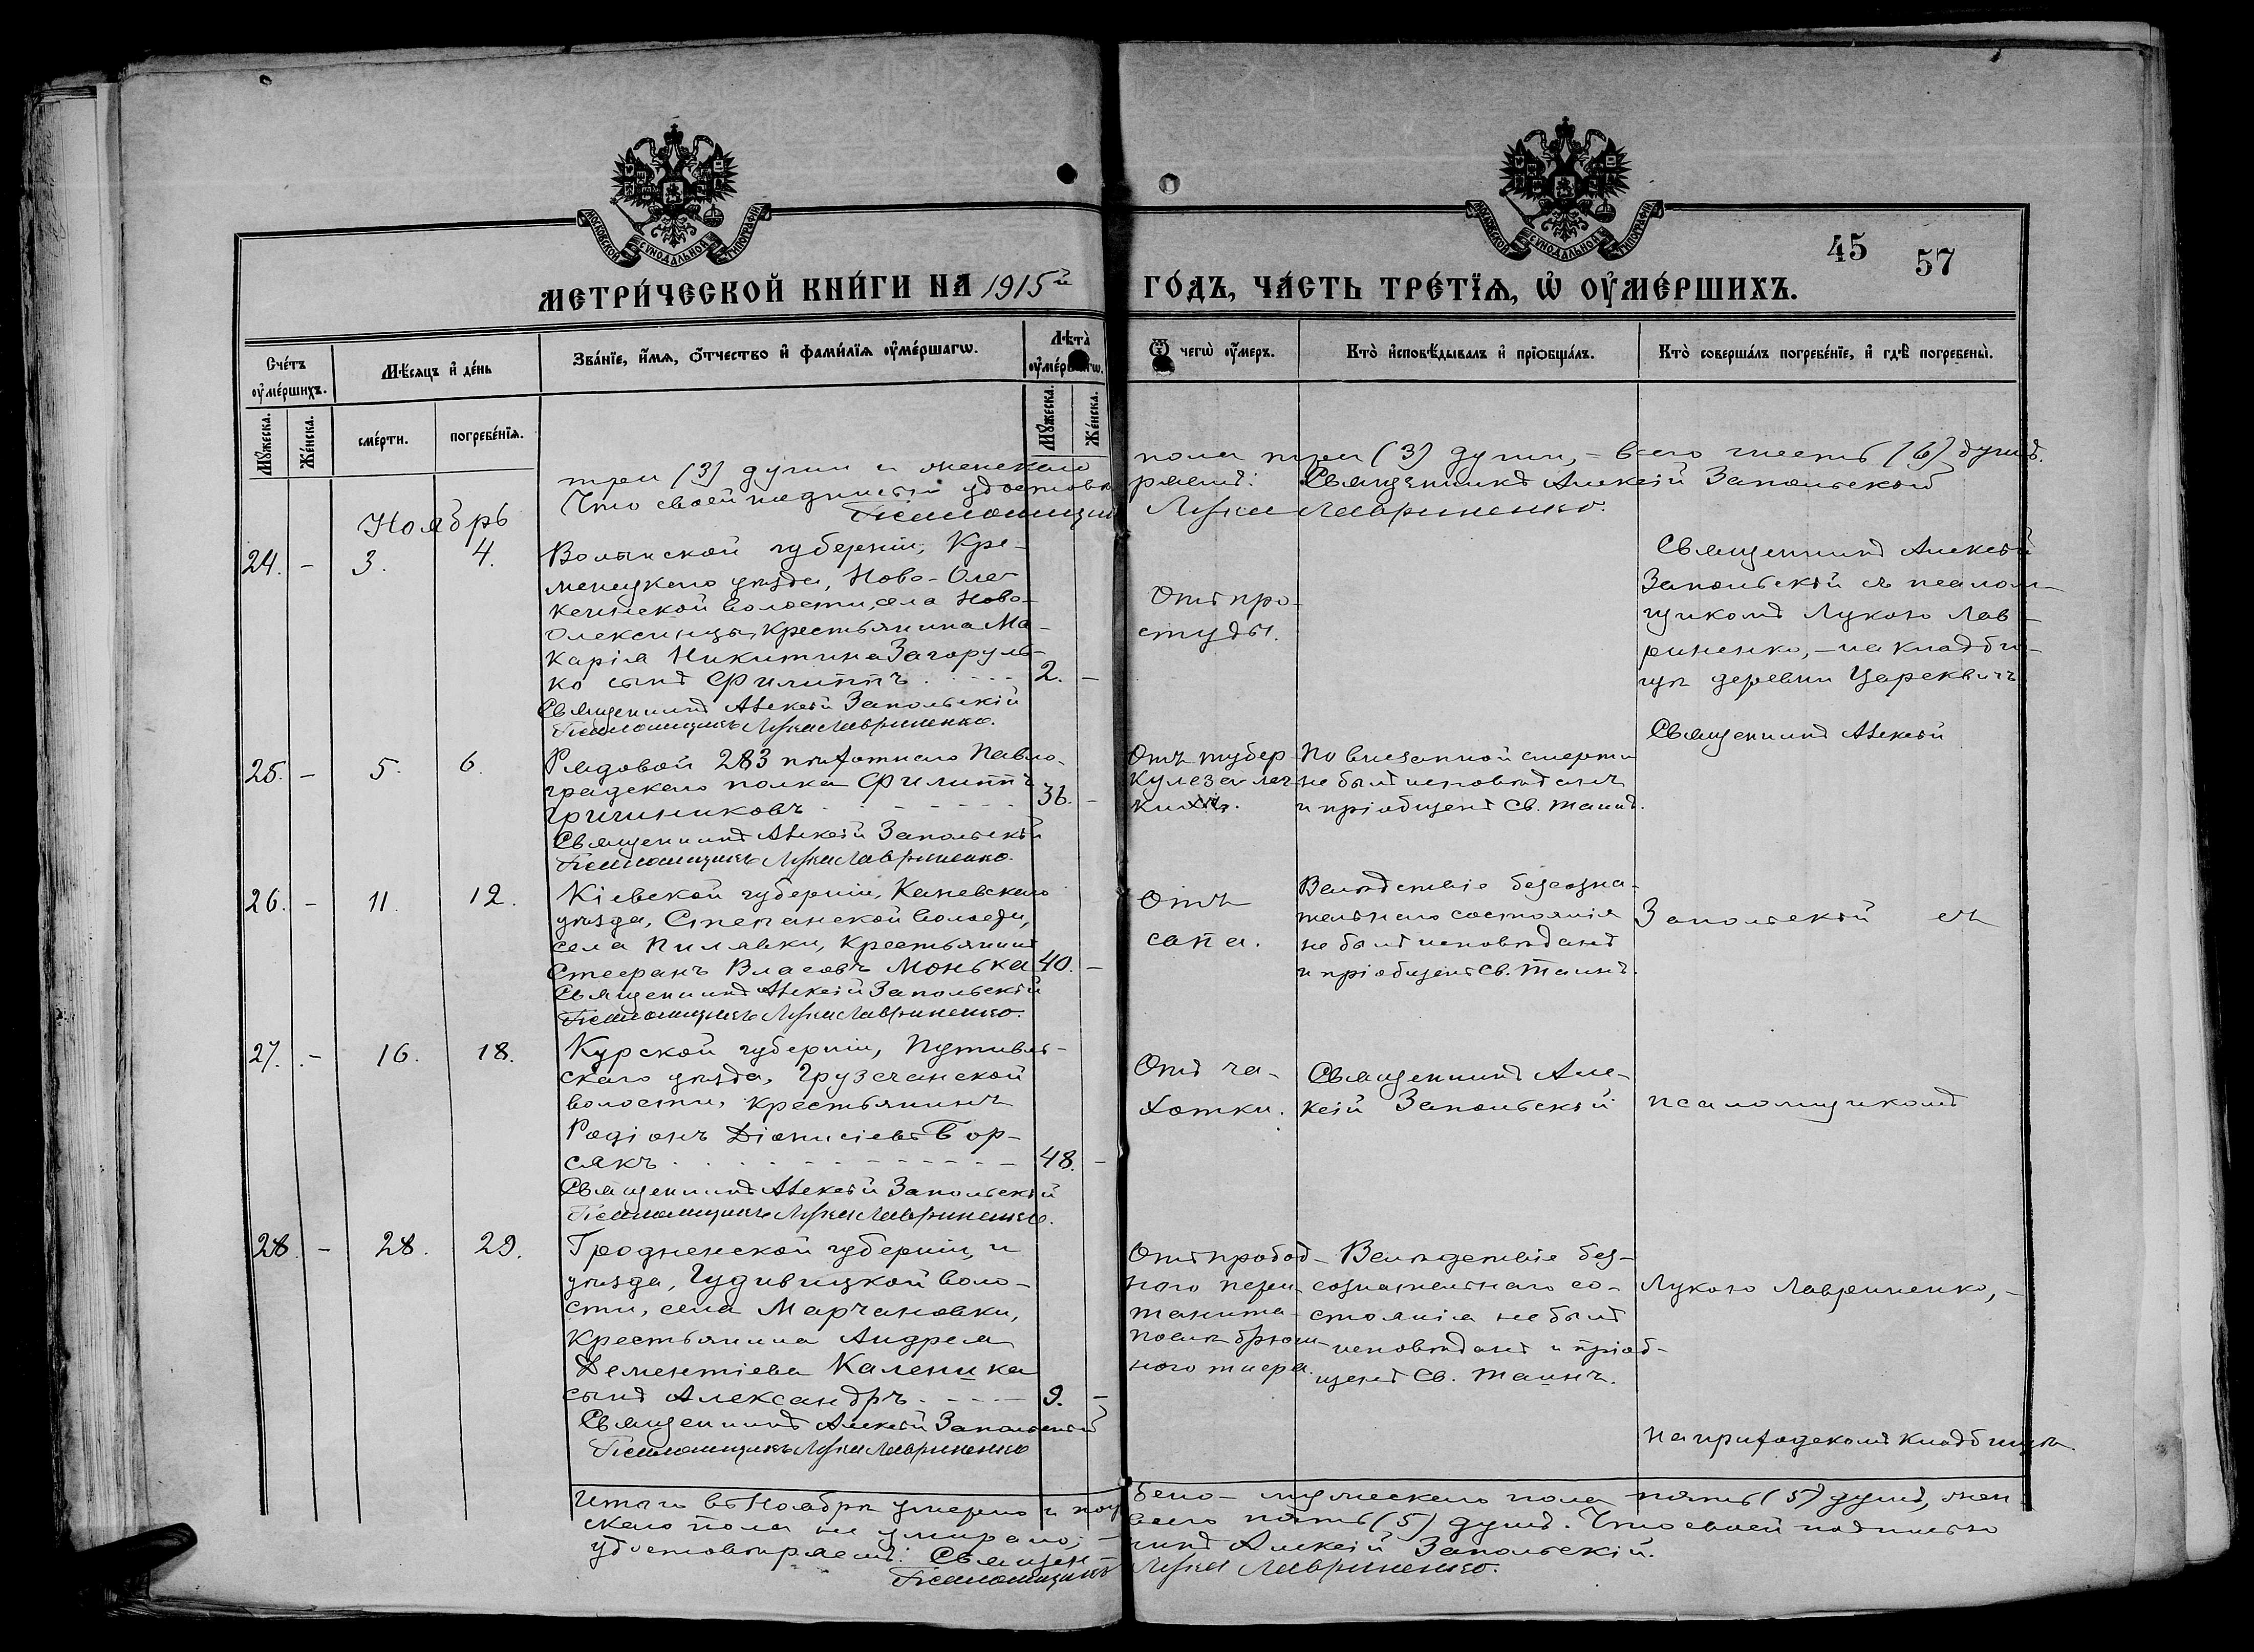 МОСКОВСКОЙ СѴНОДАЛЬНОЙ ТИПОГРАФІИ
МОСКОВСКОЙ СѴНОДАЛЬНОЙ ТИПОГРАФІИ
45 57
МЕТРИ́ЧЕСКОЙ КНИ́ГИ НА 1915й ГО́ДЪ, ЧА́СТЬ ТРЕ́ТЇѦ, Ѡ҆ ОУ҆МЕ́РШИХЪ.
Сче́тъ оу҆ме́ршихъ.
Мѣ́сяцъ и҆ де́нь
Зва́нїе, и҆́мя, ѻ҆́тчество и҆ фами́лїя оу҆ме́ршагѡ.
Лѣ́та оу҆ме́ршагѡ.
Ѿ чегѡ̀ оу҆́меръ.
Кто̀ и҆сповѣ́дывалъ и҆ прїѡбща́лъ.
Кто̀ соверша́лъ погребе́нїе, и҆ гдѣ̀ погребены̀.
Мꙋ́жеска.
Же́нска.
сме́рти.
погребе́нїя.
Мꙋ́жеска.
Же́нска.
три (3) души и женскаго пола три (3) души, – всего шесть (6) душъ.
Что своей подписью удостовѣряемъ: Священникъ Алексій Запольскій
Псаломщикъ Лука Лавриненко.
Ноябрь
24. – 3. 4.
Волынской губерніи, Кре-
менецкаго уѣзда, Ново-Оле-
ксинской волости, села Ново-
Олексинцы, крестьянина Ма-
карія Никитина Загоруль-
ко сынъ Филиппъ . - - - 2. –
Священникъ Алексій Запольскій
Псаломщикъ Лука Лавриненко.
Отъ про-
студы.
Священникъ Алексій
Запольскій съ псалом-
щикомъ Лукою Лав-
риненко, – на кладби-
щѣ деревни Царевичъ
25. – 5. 6.
Рядовой 283 пѣхотнаго Павло-
градскаго полка Филиппъ
Гричиниковъ - - - - 36. –
Священникъ Алексій Запольскій
Псаломщикъ Лука Лавриненко.
Отъ тубер
кулеза лег-
кихъ.
По внезапной смерти
не былъ исповѣданъ
и пріобщенъ Св. Таинъ.
Священникъ Алексій
26. – 11. 12.
Кіевской губерніи, Каневскаго
уѣзда, Степанской волости,
села Пилявки, крестьянинъ
Стефанъ Власовъ Монька 40. –
Священникъ Алексій Запольскій
Псаломщикъ Лука Лавриненко.
Отъ
сапа.
Вслѣдствіе безсозна-
тельнаго состоянія
не былъ исповѣданъ
и пріобщенъ Св. Таинъ.
Запольскій съ
27. – 16. 18.
Курской губерніи, Путивль-
скаго уѣзда, Грузсчанской
волости, крестьянинъ
Родіонъ Діонисіевъ Бор-
сякъ . - - - - - 48. –
Священникъ Алексій Запольскій
Псаломщикъ Лука Лавриненко.
Отъ ча-
хотки.
Священникъ Але-
ксій Запольскій
псаломщикомъ
28. – 28. 29.
Гродненской губерніи, и
уѣзда, Гудивицкой воло-
сти, села Марчановки,
крестьянина Андрея
Дементіева Каленика
сынъ Александръ . - - - 9. –
Священникъ Алексій Запольскій
Псаломщикъ Лука Лавриненко
Отъ пробод-
ного пери-
тонита
послѣ брюш-
ного тифа.
Вслѣдствіе без-
сознательнаго со-
стоянія не былъ
исповѣданъ и пріоб-
щенъ Св. Таинъ.
Лукою Лавриненко, –
на приходскомъ кладбищѣ
Итого въ Ноябрѣ умерло и погребено – мужескаго пола пять (5) душъ, жен-
скаго пола не умирало; – всего пять (5) душъ. Что своей подписью
удостовѣряемъ: Священникъ Алексій Запольскій.
Псаломщикъ Лука Лавриненко.